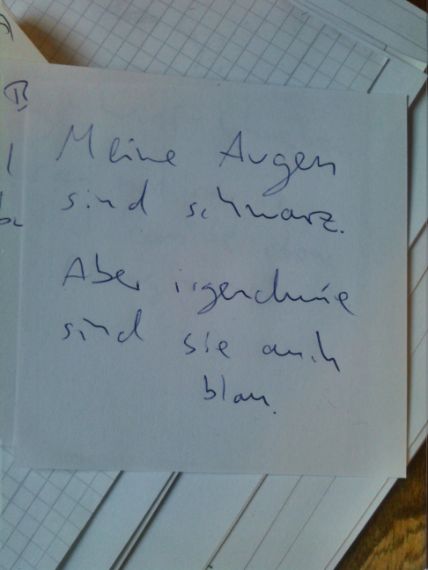 Meine Augen
sind schwarz.
Aber irgendwie
sind sie auch
blau.